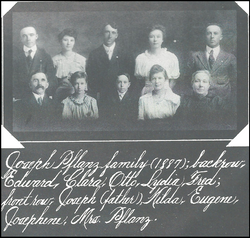 Joseph Pflanz family (1887); backrow,
Edward, Clara, Otto, Lydia, Fred;
front row, Joseph (father), Hilda, Eugene,
Josephine, Mrs. Pflanz.